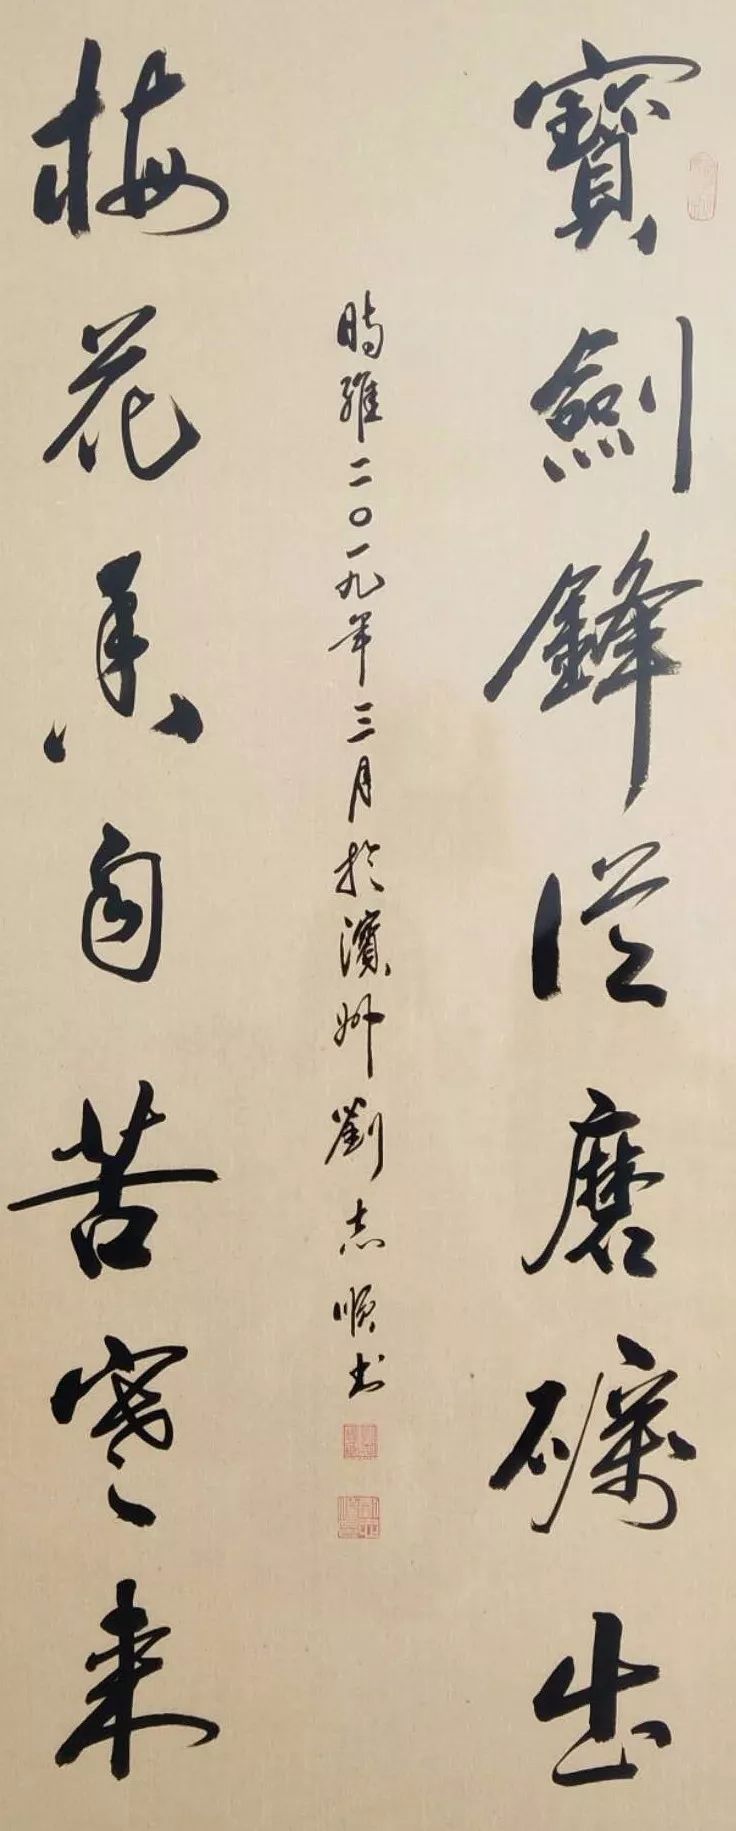 寶劍鋒從磨礪出
梅花香自苦寒来
時維二〇一九年三月於濱州劉志順书